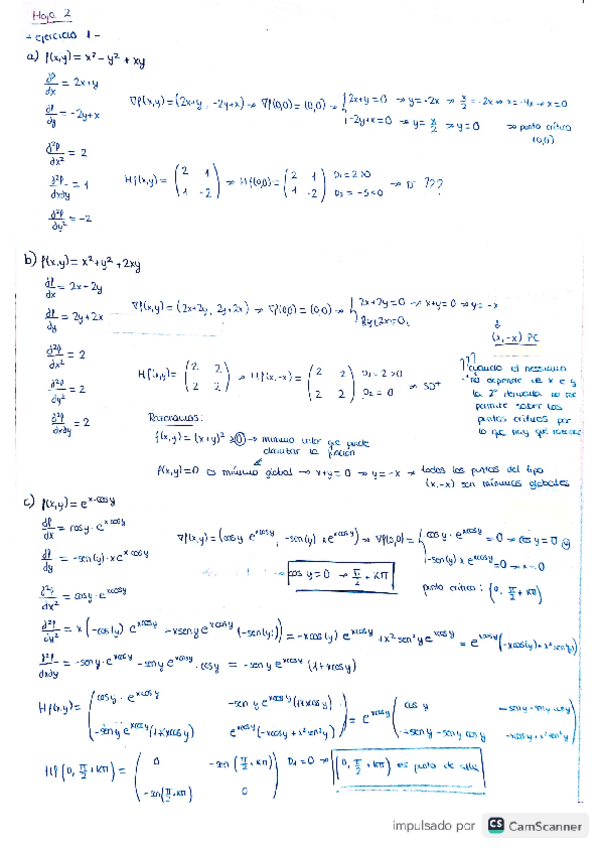 Hoja 2
- ejercicio 1 -
a) f(x,y) = x² - y² + xy
df/dx = 2x+y
df/dy = -2y+x
∇f(x,y) = (2x+y, -2y+x) → ∇f(0,0) = (0,0) → { 2x+y=0 → y=-2x → x/2 = -2x → x=-4x → x=0
-2y+x=0 → y= x/2 → y=0 → punto crítico (0,0)
d²f/dx² = 2
d²f/dxdy = 1
d²f/dy² = -2
Hf(x,y) = (2 1 / 1 -2) → Hf(0,0) = (2 1 / 1 -2) D₁=2>0 D₂=-5<0 → D ???
b) f(x,y) = x² + y² + 2xy
df/dx = 2x - 2y
df/dy = 2y + 2x
∇f(x,y) = (2x+2y, 2y+2x) → ∇f(0,0) = (0,0) → { 2x+2y=0 → x+y=0 → y=-x
2y+2x=0
(x,-x) PC
d²f/dx² = 2
d²f/dy² = 2
d²f/dxdy = 2
Hf(x,y) = (2 2 / 2 2) → Hf(x,-x) = (2 2 / 2 2) D₁=2>0 D₂=0 → SD+
??? cuando el hessiano
no depende de x e y
la 2ª derivada no me
permite saber los
puntos críticos por
lo que hay que
f(x,y) = (x+y)² ≥ 0 → mínimo valor que puede
la función
f(x,y)=0 es mínimo global → x+y=0 → y=-x → todos los puntos del tipo
(x,-x) son mínimos globales
c) f(x,y) = e^(x·cosy)
df/dx = cosy · e^(xcosy)
df/dy = -sen(y)·x e^(xcosy)
∇f(x,y) = (cosy e^(xcosy), -sen(y) x e^(xcosy)) → ∇f(0,0) = { cosy · e^(xcosy) = 0 → cosy = 0
-sen(y) x e^(xcosy) = 0 → x=0
cos y = 0 → π/2 + kπ
punto crítico: (0, π/2 + kπ)
d²f/dx² = cosy · e^(xcosy)
d²f/dy² = x(-cos(y) e^(xcosy) - xseny e^(xcosy)(-sen(y))) = -xcos(y) e^(xcosy) + x² sen²y e^(xcosy) = e^(xcosy)(-xcos(y) + x² sen²y)
d²f/dxdy = -seny · e^(xcosy) - seny e^(xcosy) · cosy = -seny e^(xcosy)(1+xcosy)
Hf(x,y) = (cosy · e^(xcosy) -sen y e^(xcosy)(1+xcosy) / -seny e^(xcosy)(1+xcosy) e^(xcosy)(-xcosy + x² sen²y)) = e^(xcosy) (cos y -seny - seny cosy / -seny - seny cosy -xcosy + x² sen²y)
Hf(0, π/2 + kπ) = (0 -sen(π/2 + kπ) / -sen(π/2 + kπ) 0) D₁=0 → (0, π/2 + kπ) es punto de silla
impulsado por CS CamScanner